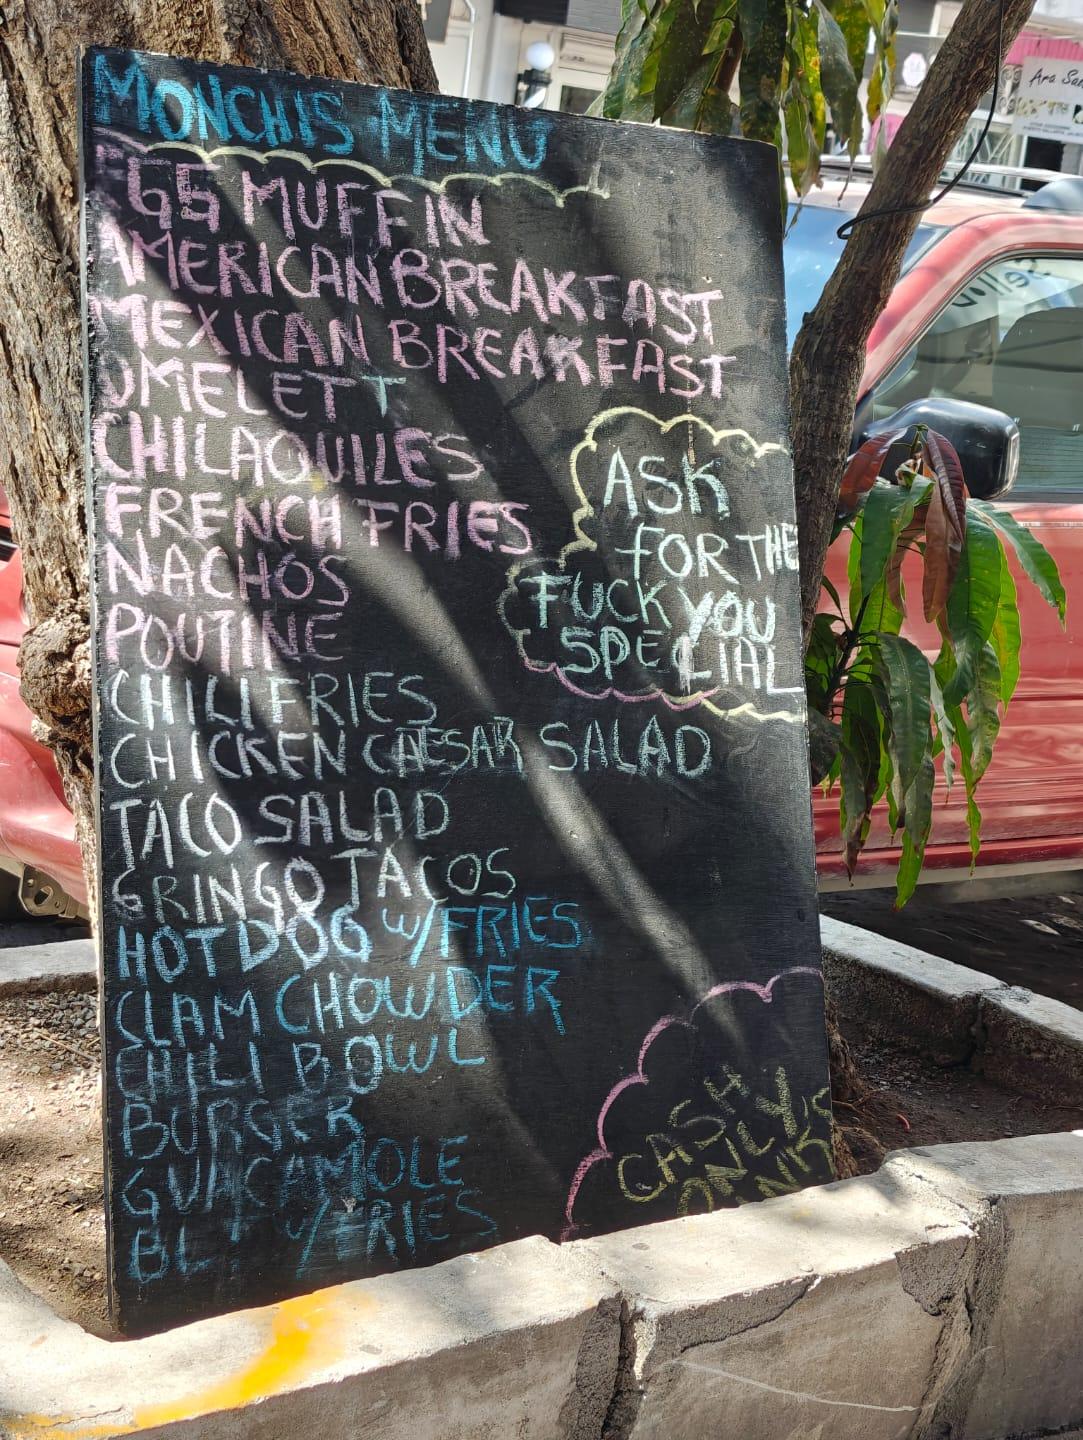 MONCHIS MENU
EGG MUFFIN
AMERICAN BREAKFAST
MEXICAN BREAKFAST
OMELETT
CHILAQUILES
FRENCH FRIES
NACHOS
POUTINE
CHILI FRIES
CHICKEN CAESAR SALAD
TACO SALAD
GRINGO TACOS
HOT DOG w/FRIES
CLAM CHOWDER
CHILI BOWL
BURGER
GUACAMOLE
BL. w/FRIES
ASK
FOR THE
FUCK YOU
SPECIAL
CASH
ONLY
Ara